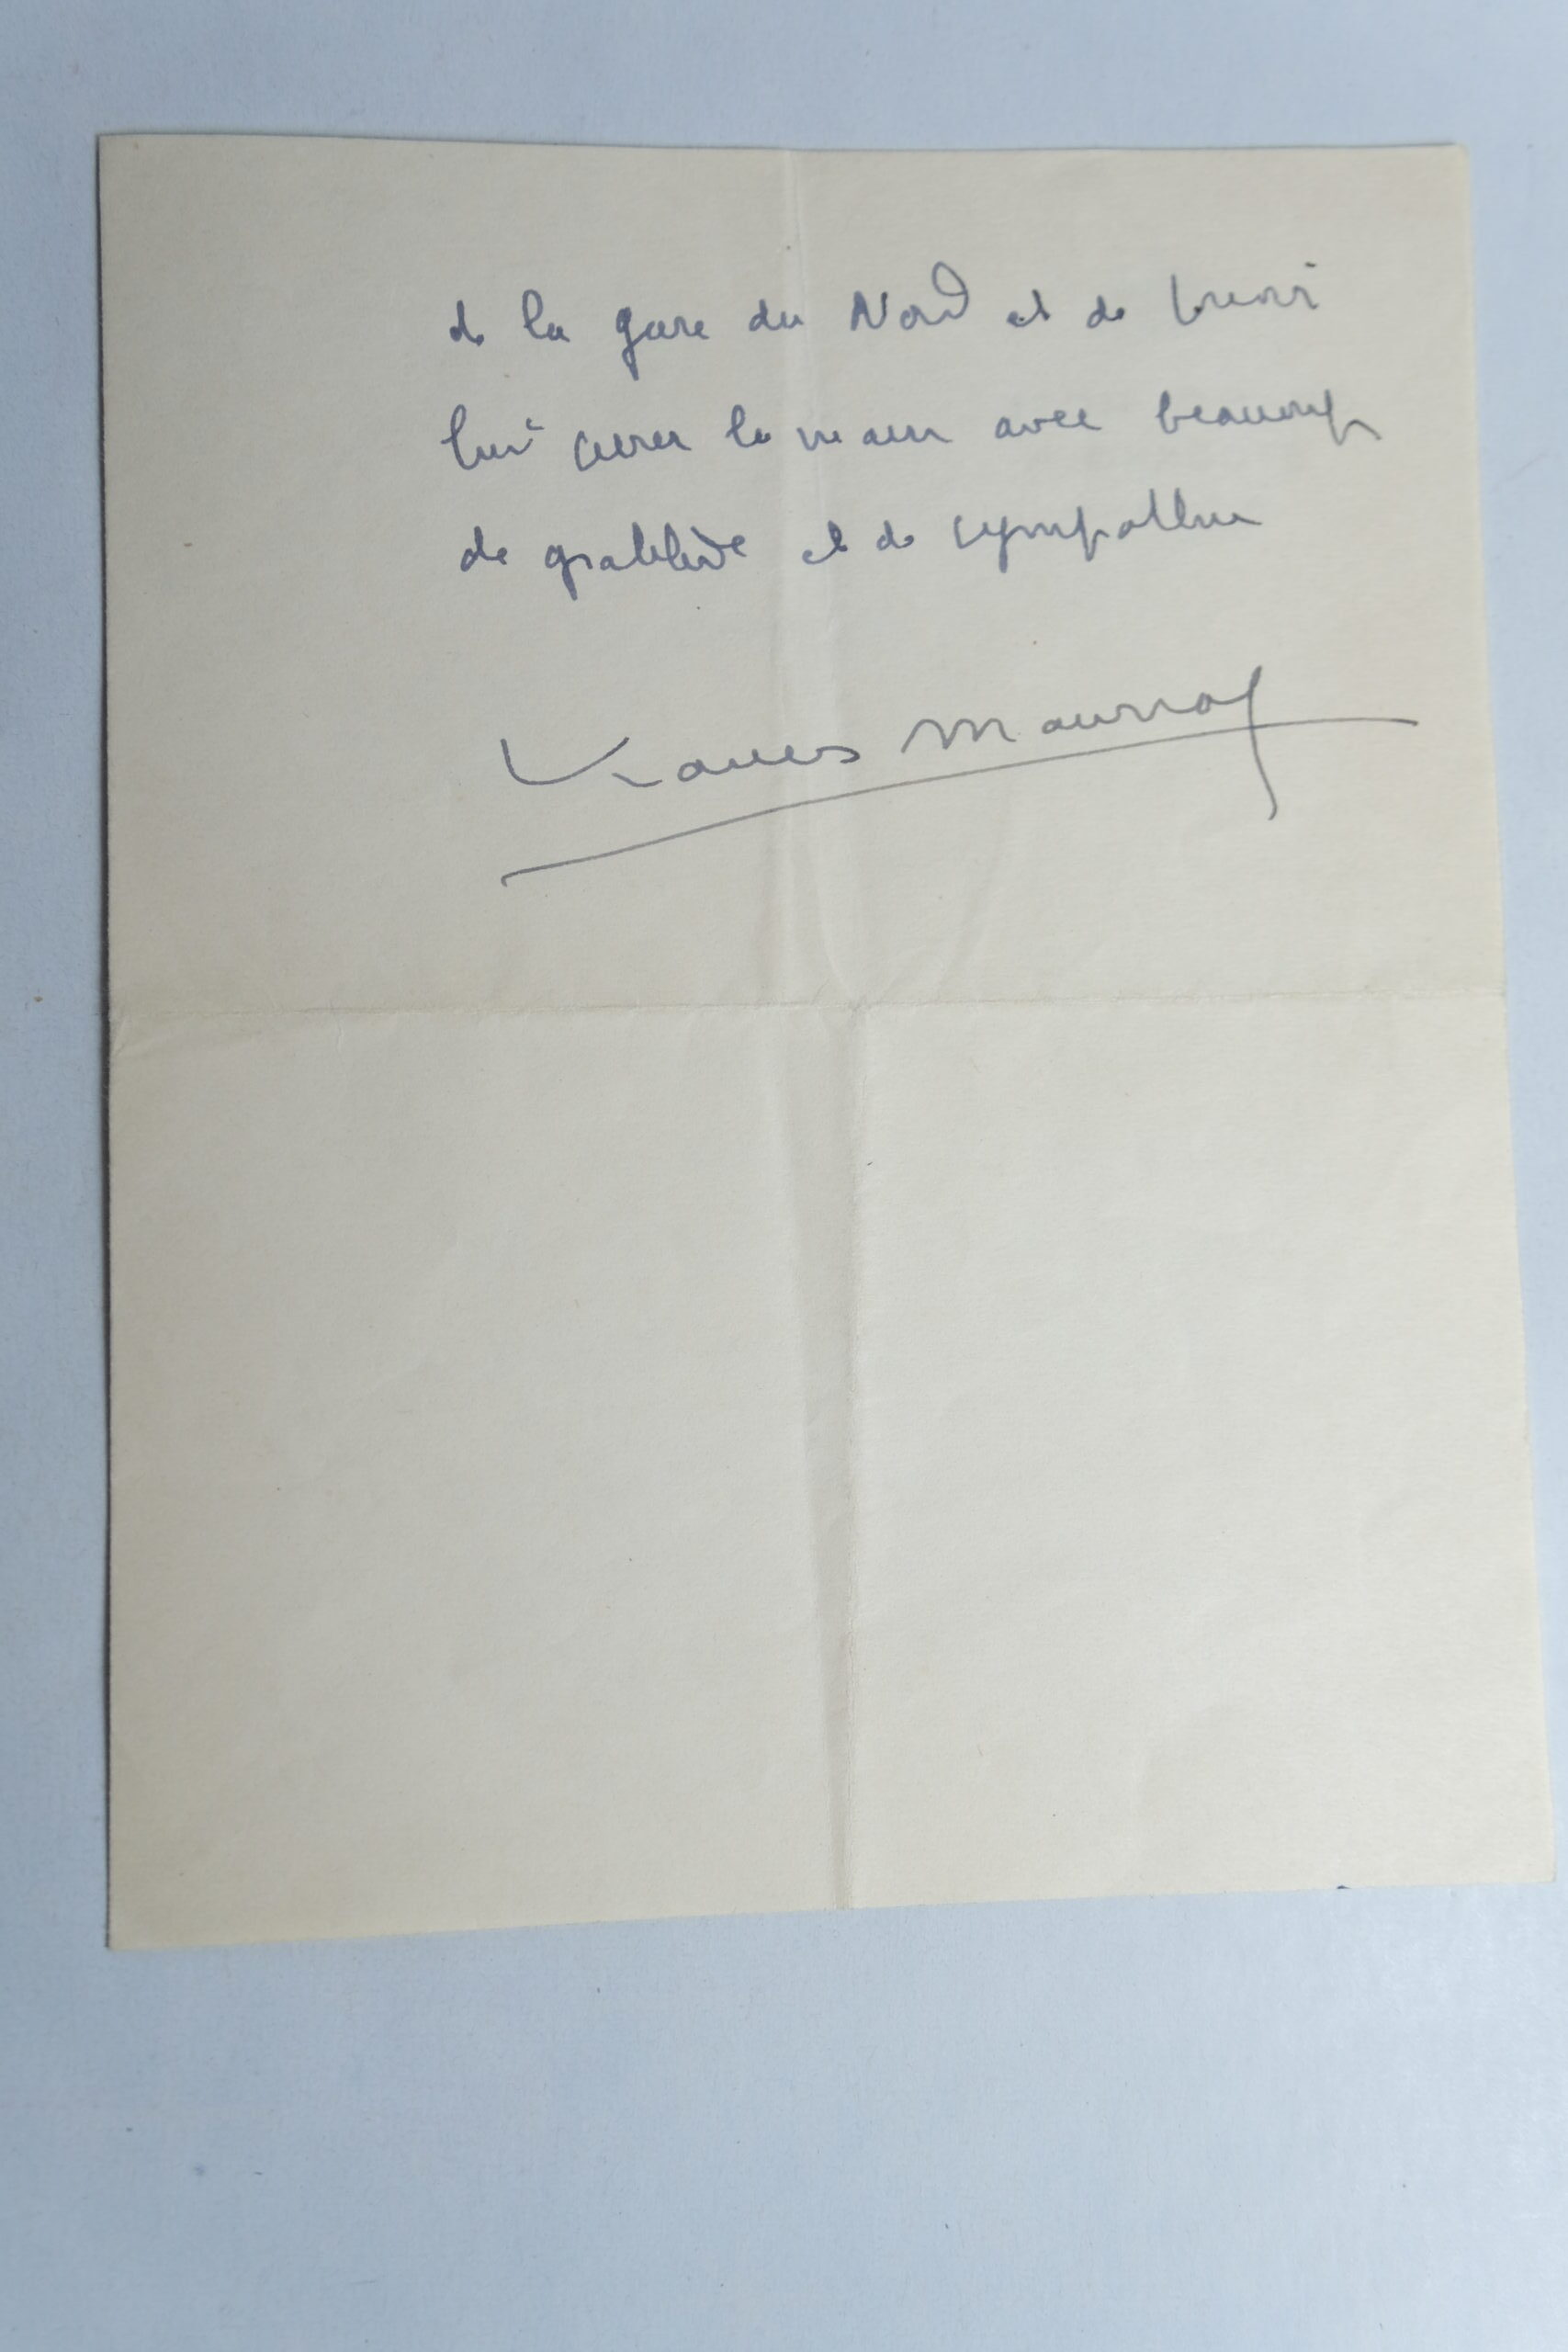 de la gare du Nord et de venir
lui serrer la main avec beaucoup
de gratitude et de sympathie
François Mauriac